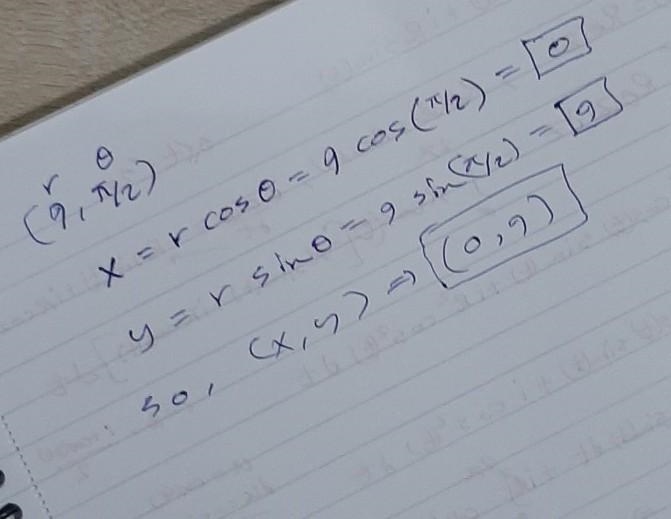 r θ
(9, π/2)
x = r cos θ = 9 cos(π/2) = 0
y = r sin θ = 9 sin(π/2) = 9
so, (x, y) ⇒ (0, 9)